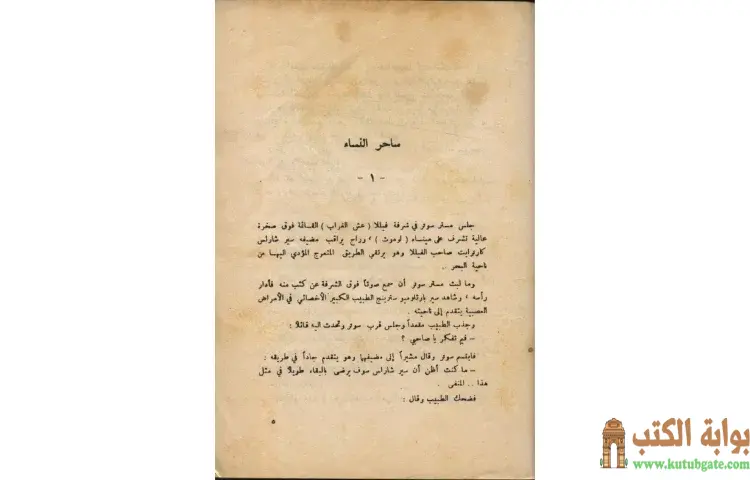 ساحر النساء
- ١ -
جلس مستر سوتر في شرفة فيللا ( عش الغراب ) القائمة فوق صخرة
عالية تشرف على مينساء ( لوموث ) ، وراح يراقب مضيفه سير شارلس
كارترايت صاحب الفيللا وهو يرتقي الطريق المتعرج المؤدي اليها من
ناحية البحر ..
وما لبث مستر سوتر أن سمع صوتاً فوق الشرفة عن كثب منه فأدار
رأسه ، وشاهد سير بارثلوميو سترينج الطبيب الكبير الأخصائي في الأمراض
العصبية يتقدم إلى ناحيته .
وجذب الطبيب مقعداً وجلس قرب سوتر وتحدث اليه قائلا :
- فيم تفكر يا صاحبي ؟
فابتسم سوتر وقال مشيراً إلى مضيفهما وهو يتقدم جاداً في طريقه :
- ما كنت أظن أن سير شارلس سوف يرضى بالبقاء طويلا في مثل
هذا .. المنفى .
فضحك الطبيب وقال :
٥
بوابة الكتب
www.kutubgate.com